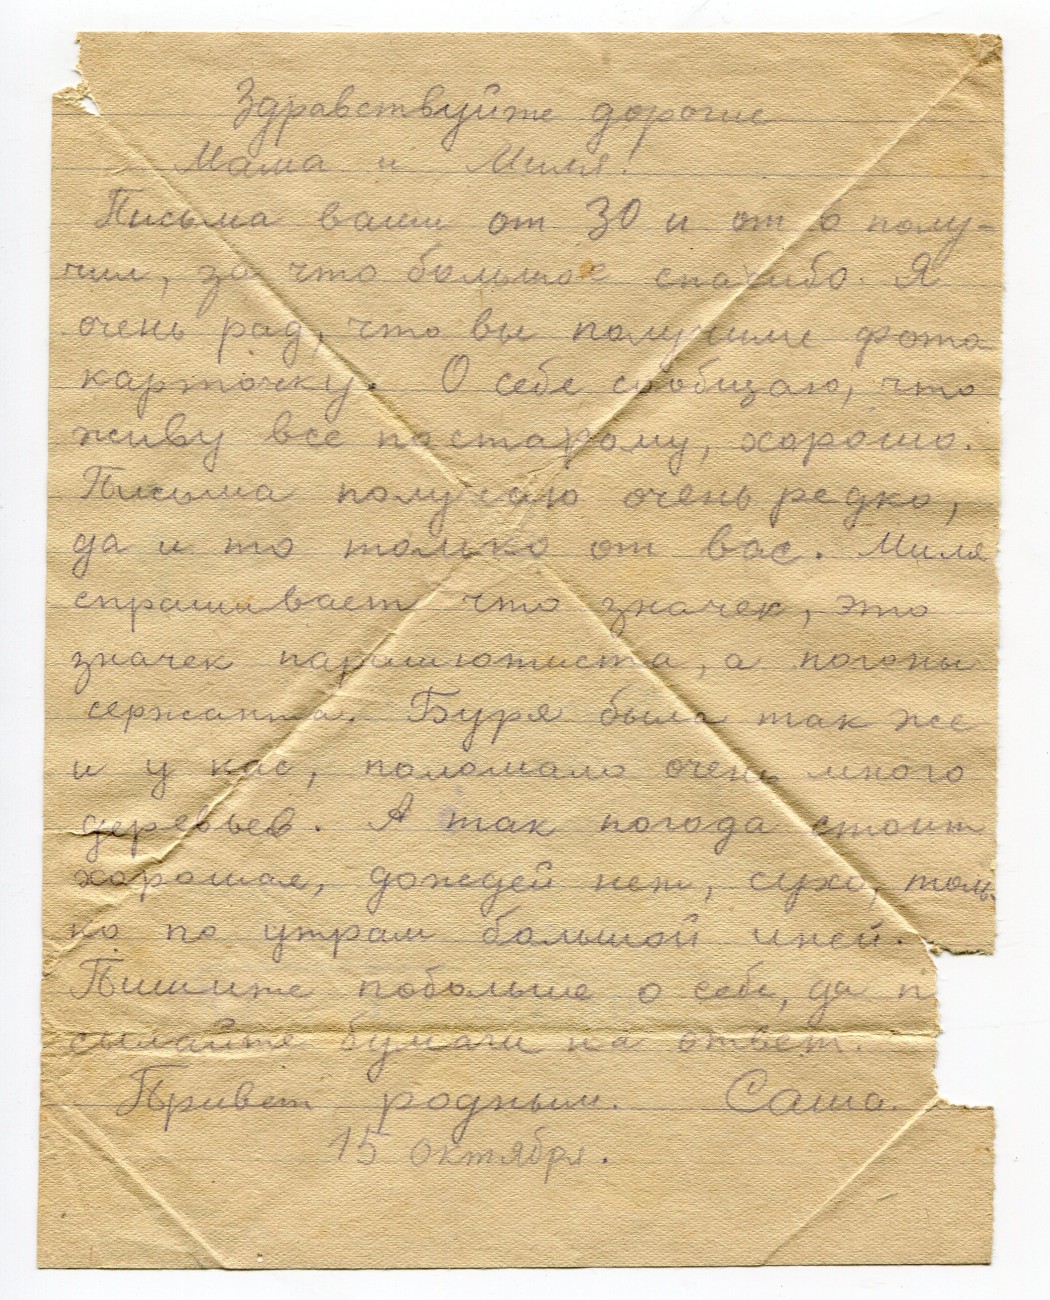 Здравствуйте дорогие
Мама и Миля!
Письма ваши от 30 и от 6 полу-
чил, за что большое спасибо. Я
очень рад, что вы получили фото
карточку. О себе сообщаю, что
живу все постарому, хорошо.
Письма получаю очень редко,
да и то только от вас. Миля
спрашивает что значек, это
значек парашютиста, а погоны
сержанта. Буря была так же
и у нас, поломало очень много
деревьев. А так погода стоит
хорошая, дождей нет, сухо, толь-
ко по утрам большой иней.
Пишите побольше о себе, да п
сылайте бумаги на ответ.
Привет родным. Саша.
15 октября.